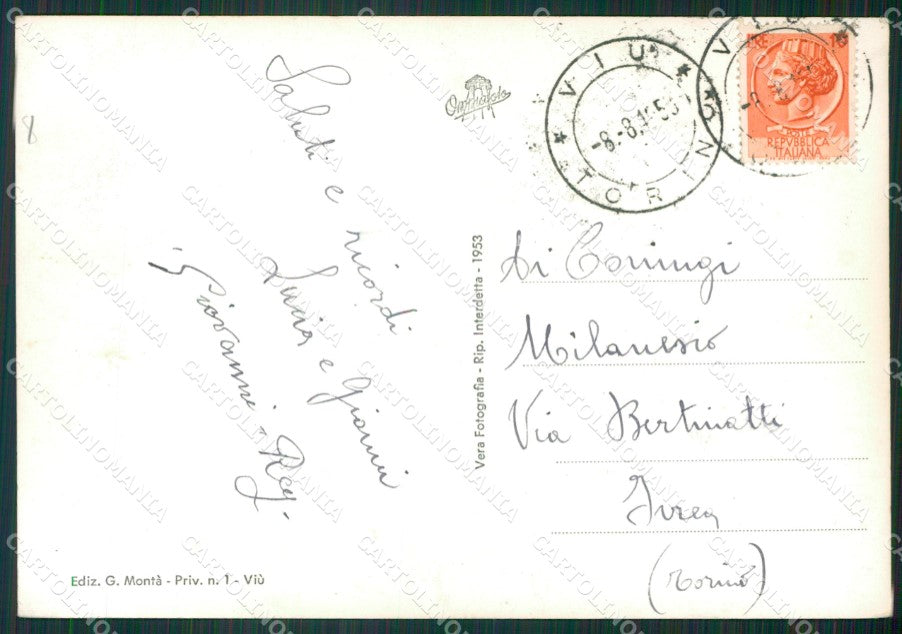 Saluti e
ricordi
Luisa e Gianni
Giovanni - Reg.
8
VIÙ
TORINO
-8.-8.1953
VIÙ
REPVBBLICA
ITALIANA
POSTE
Vera Fotografia - Rip. Interdetta - 1953
Ai Coniugi
Milanesio
Via Bertinatti
Ivrea
(Torino)
Ediz. G. Montà - Priv. n. 1 - Viù
CARTOLINOMANIA